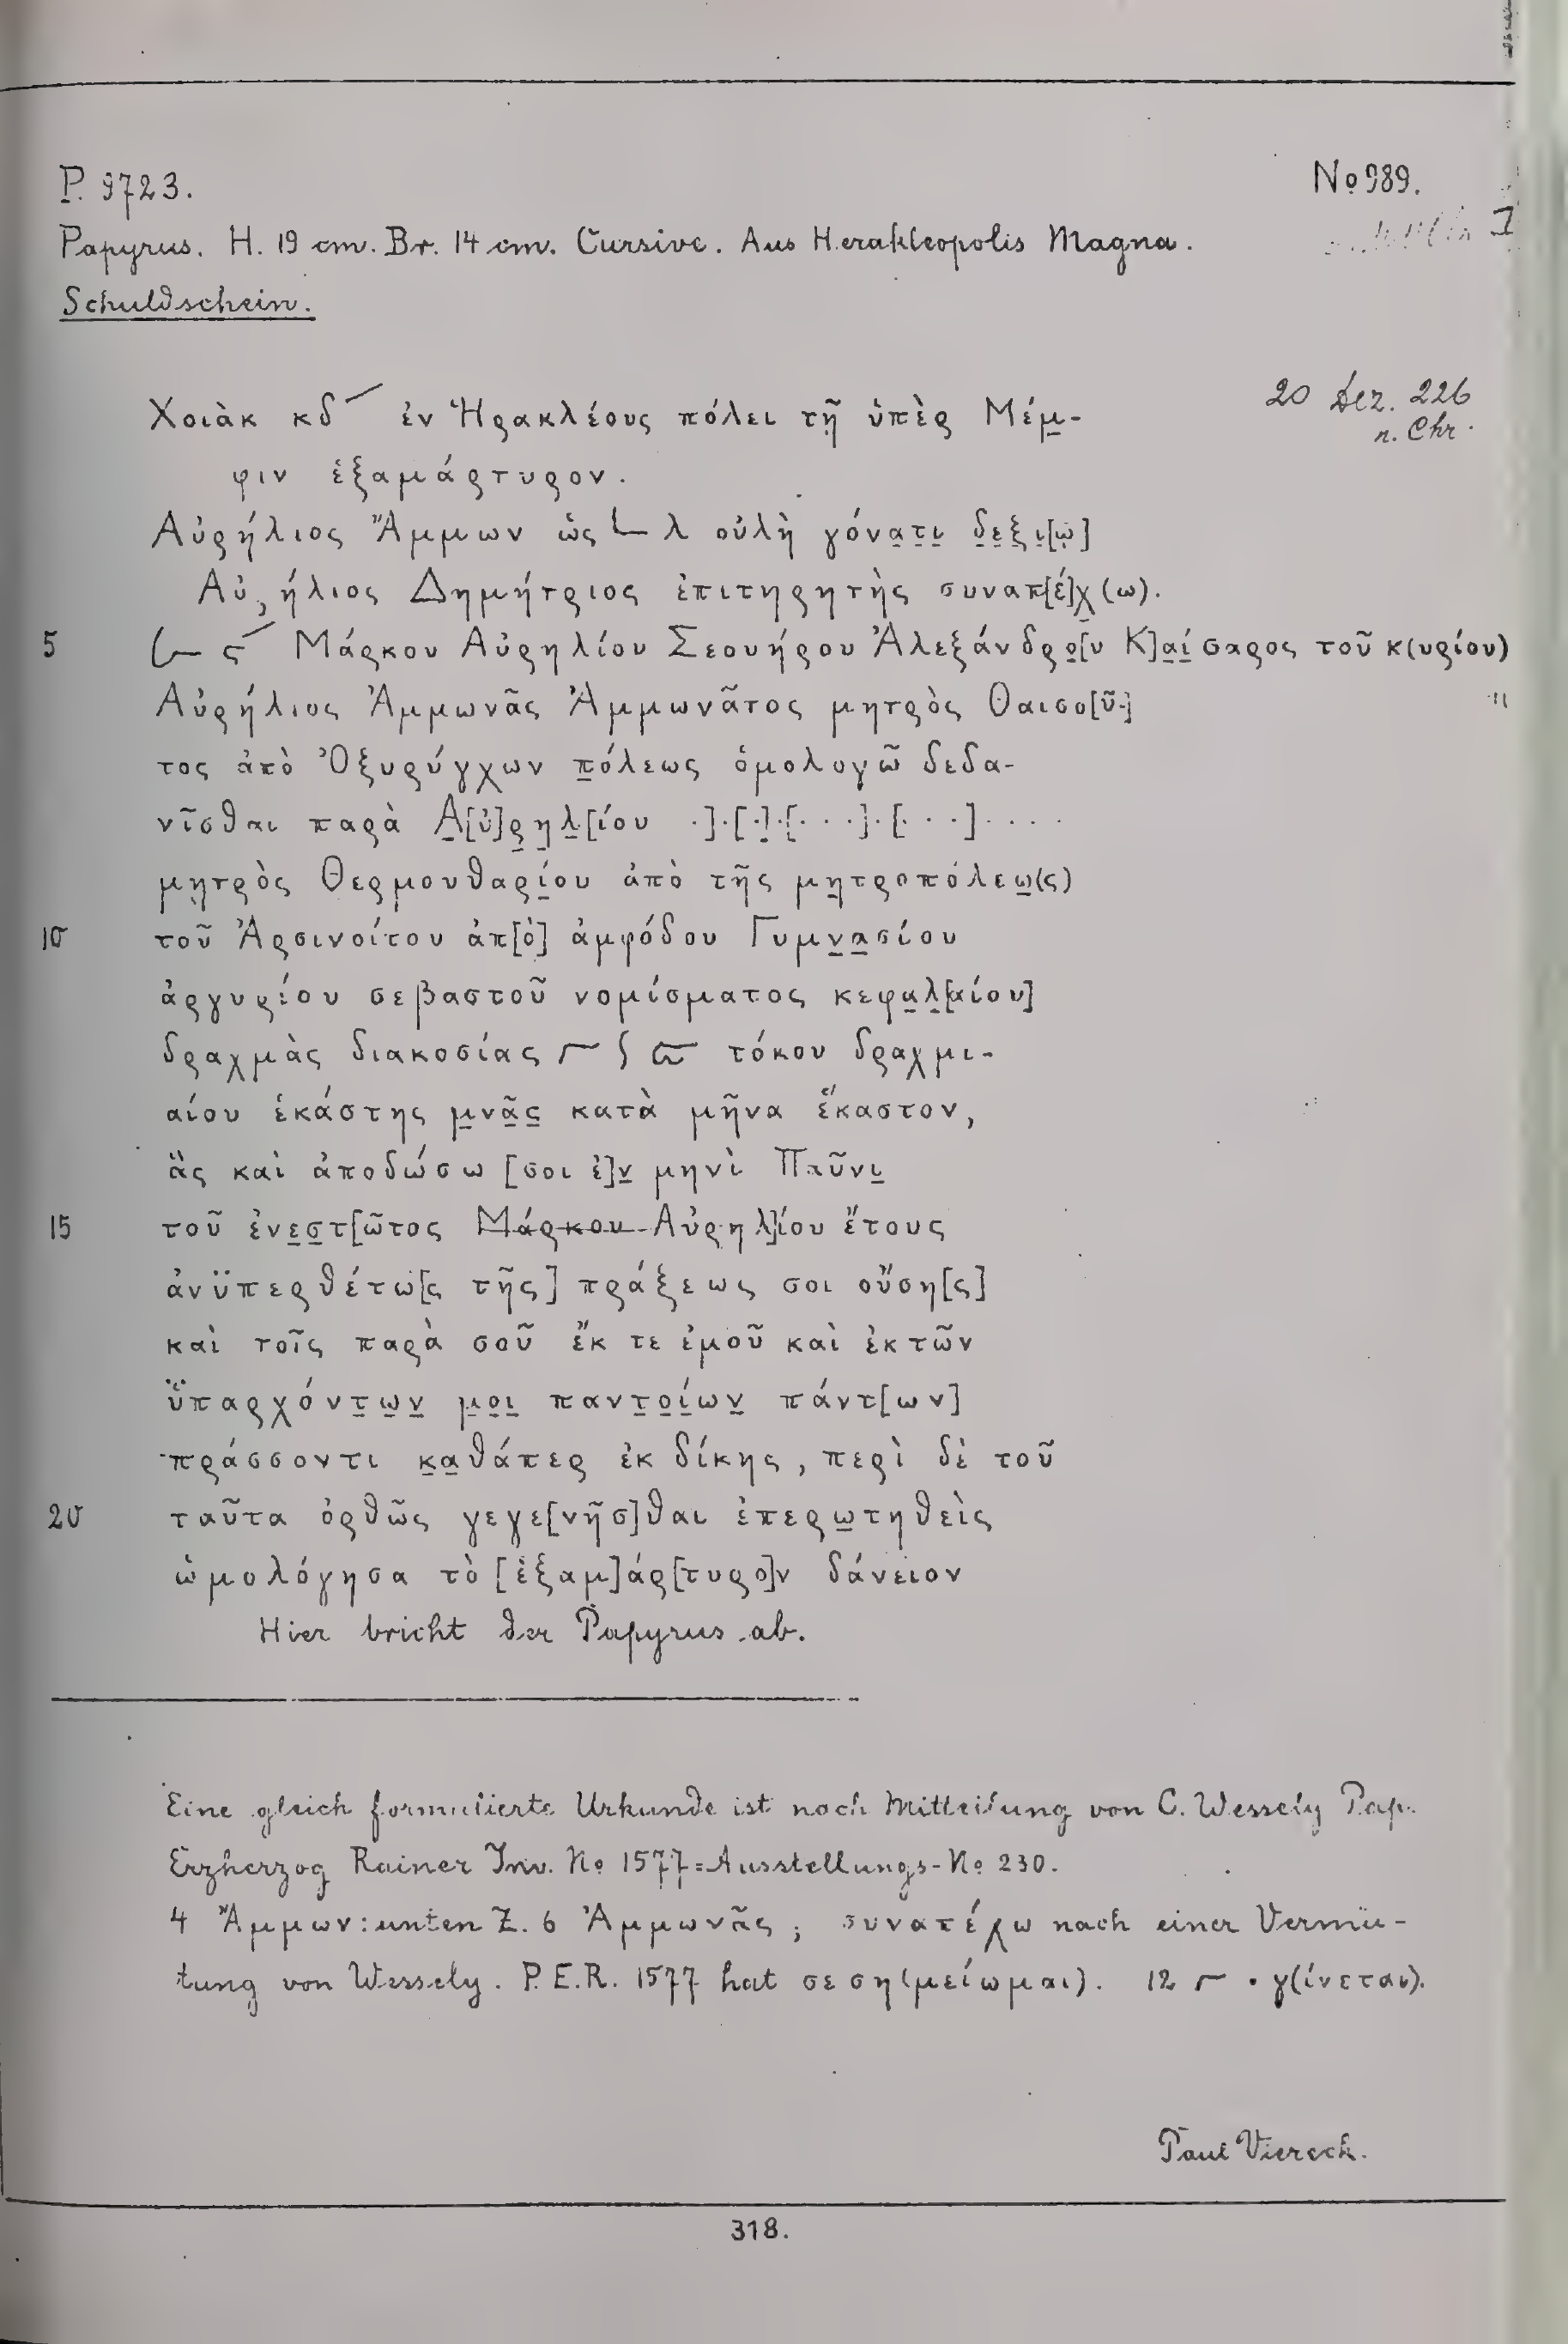 P. 9723. No 989.
Papyrus. H. 19 cm. Br. 14 cm. Cursive. Aus Herakleopolis Magna.
Schuldschein.
20 Dez. 226
n. Chr.
Χοιὰκ κδ ἐν Ἡρακλέους πόλει τῇ ὑπὲρ Μέμ-
φιν ἑξαμάρτυρον.
Αὐρήλιος Ἄμμων ὡς 𐅹 λ οὐλὴ γόνατι δεξι[ῷ]
Αὐρήλιος Δημήτριος ἐπιτηρητὴς συναπ[έ]χ(ω).
5 𐅹 ς Μάρκου Αὐρηλίου Σεουήρου Ἀλεξάνδρο[υ Κ]αίσαρος τοῦ κ(υρίου)
Αὐρήλιος Ἀμμωνᾶς Ἀμμωνᾶτος μητρὸς Θαισο[ῦ-]
τος ἀπὸ Ὀξυρύγχων πόλεως ὁμολογῶ δεδα-
νῖσθαι παρὰ Α[ὐ]ρηλ[ίου ·]·[·]·[· · ·]·[· · ·]· · · ·
μητρὸς Θερμουθαρίου ἀπὸ τῆς μητροπόλεω(ς)
10 τοῦ Ἀρσινοίτου ἀπ[ὸ] ἀμφόδου Γυμνασίου
ἀργυρίου σεβαστοῦ νομίσματος κεφαλ[αίου]
δραχμὰς διακοσίας 𐅬 ϛ ϖ τόκου δραχμι-
αίου ἑκάστης μνᾶς κατὰ μῆνα ἕκαστον,
ἃς καὶ ἀποδώσω [σοι ἐ]ν μηνὶ Παῦνι
15 τοῦ ἐνεστ[ῶτος Μάρκου Αὐρηλ]ίου ἔτους
ἀνϋπερθέτω[ς τῆς] πράξεως σοι οὔση[ς]
καὶ τοῖς παρὰ σοῦ ἔκ τε ἐμοῦ καὶ ἐκ τῶν
ὑ̈παρχόντων μοι παντοίων πάντ[ων]
πράσσοντι καθάπερ ἐκ δίκης, περὶ δὲ τοῦ
20 ταῦτα ὀρθῶς γεγε[νῆσ]θαι ἐπερωτηθεὶς
ὡμολόγησα τὸ [ἑξαμ]άρ[τυρο]ν δάνειον
Hier bricht der Papyrus ab.
Eine gleich formulierte Urkunde ist nach Mitteilung von C. Wessely Pap.
Erzherzog Rainer Inv. No 1577=Ausstellungs-No 230.
4 Ἄμμων: unten Z. 6 Ἀμμωνᾶς; συναπέχω nach einer Vermu-
tung von Wessely. P.E.R. 1577 hat σεση(μείωμαι). 12 𐅬 · γ(ίνεται).
Paul Viereck.
318.